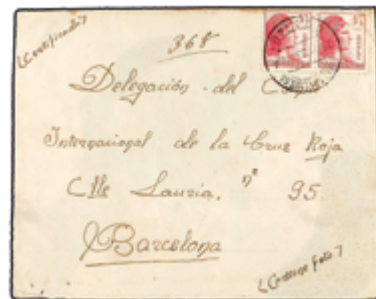 (Certificado)
368
Delegación del
Internacional de la Cruz Roja
Clle Lauria, nº 95
Barcelona
(Contiene foto)